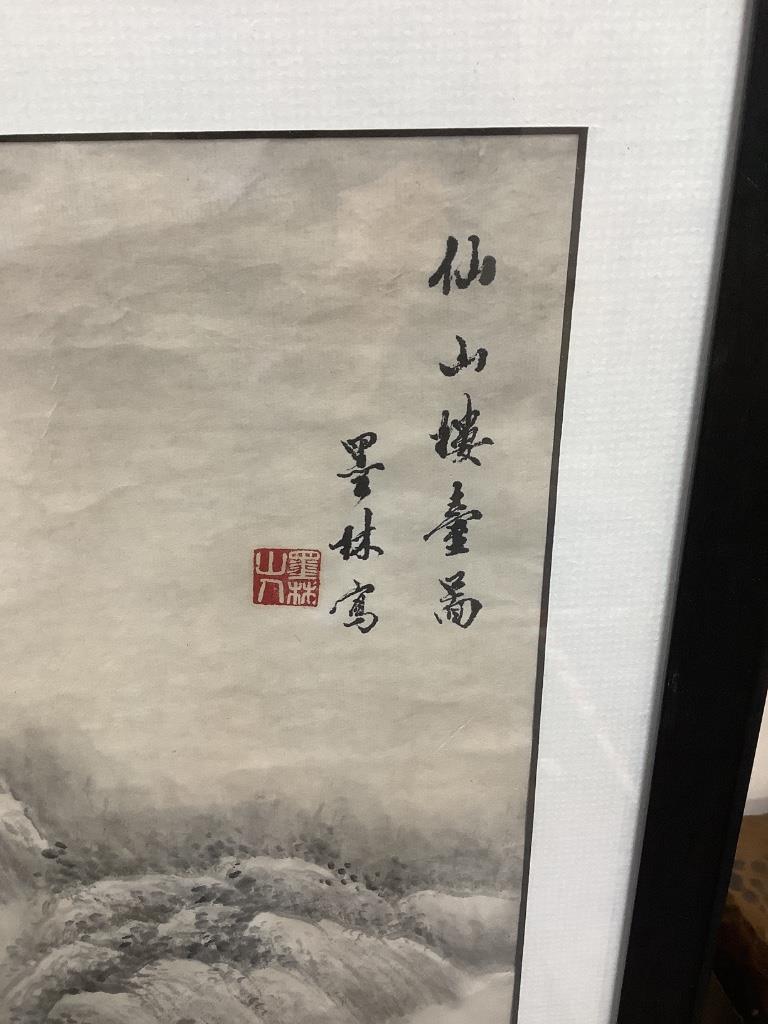 仙山樓臺啚
墨林寫
墨林山人